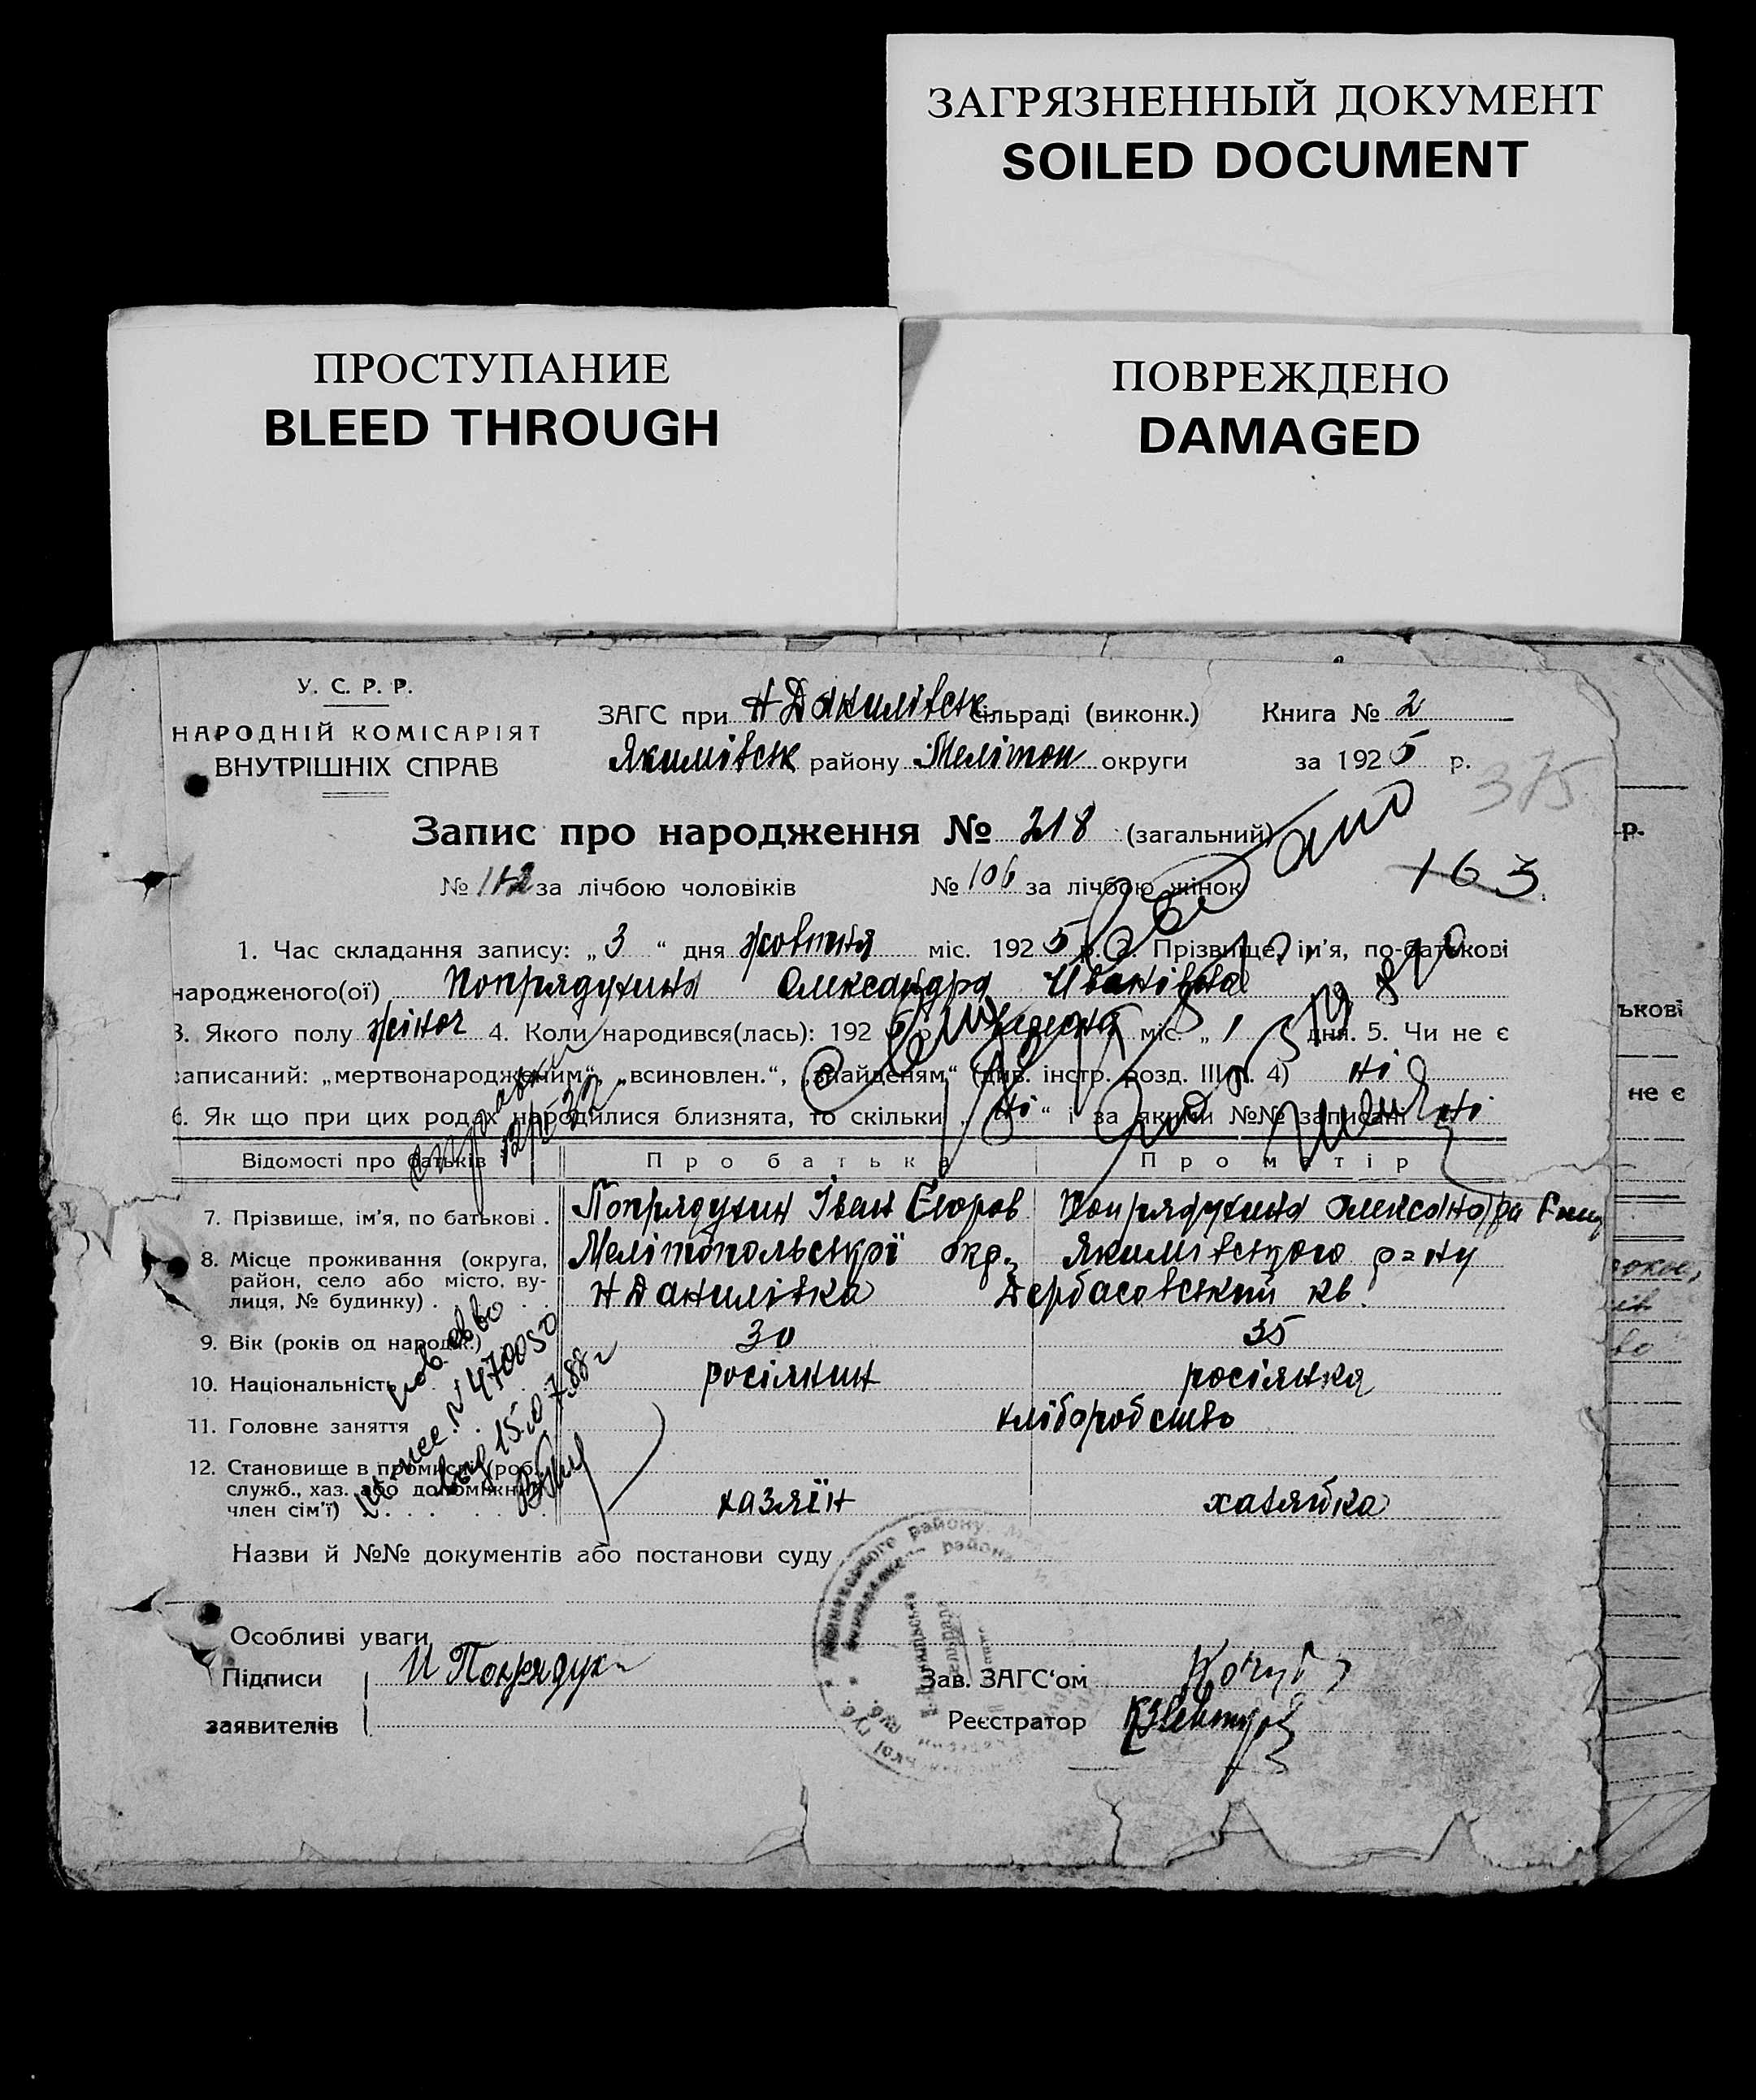 ЗАГРЯЗНЕННЫЙ ДОКУМЕНТ
SOILED DOCUMENT
ПРОСТУПАНИЕ
BLEED THROUGH
ПОВРЕЖДЕНО
DAMAGED
У. С. Р. Р.
НАРОДНІЙ КОМІСАРІЯТ
ВНУТРІШНІХ СПРАВ
ЗАГС при Н Данилівськ сільраді (виконк.) Книга № 2
Якимівськ району Мелітоп округи за 1925 р.
375
Запис про народження № 218 (загальний)
№ 112 за лічбою чоловіків № 106 за лічбою жінок
163
1. Час складання запису: „3“ дня жовтня міс. 1925 р. 2. Прізвище, ім'я, по-батькові
народженого(ої) Попрядухина Олександра Иванівна
3. Якого полу жіноч 4. Коли народився(лась): 192 міс. „1 дня. 5. Чи не є
записаний: „мертвонародженим“, „всиновлен.“, „знайденям“ (див. інстр. розд. III п. 4) ні
6. Як що при цих родах народилися близнята, то скільки „ні“ і за якими №№ записані ні
Відомості про батьків Про батька Про матір
7. Прізвище, ім'я, по батькові . Попрядухин Іван Егоров Попрядухина Олександра
8. Місце проживання (округа, район, село або місто, вулиця, № будинку) . Мелітопольської окр. Якимівського р=ну
Н Данилівка Дербасовський кв.
9. Вік (років од народж.) 30 35
10. Національність росіянин росіянка
11. Головне заняття хліборобство
12. Становище в промислі (роб., служб., хаз. або допоміжний член сім'ї) хазяїн хазяйка
пов. св-во
N 470050
15.07.88 г
Назви й №№ документів або постанови суду
Особливі уваги
Підписи И Попрядух Зав. ЗАГС'ом
заявителів Реєстратор
р.
ькові
не є